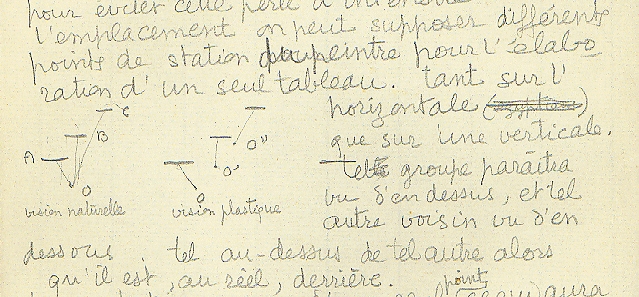 pour éviter cette perte d'intensité
l'emplacement on peut supposer différents
points de station du peintre pour l'élabo
ration d'un seul tableau. tant sur l'
horizontale (égyptiens)
que sur une verticale.
tel groupe paraîtra
vu d'en dessus, et tel
autre voisin vu d'en
A B C
O O' O"
O
vision naturelle vision plastique
dessous. tel au-dessus de tel autre alors
qu'il est, au réel, derrière.
point
aura